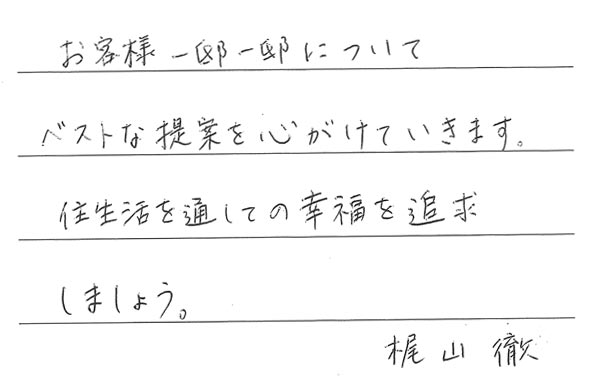 お客様一邸一邸について
ベストな提案を心がけていきます。
住生活を通しての幸福を追求
しましょう。
梶山 徹